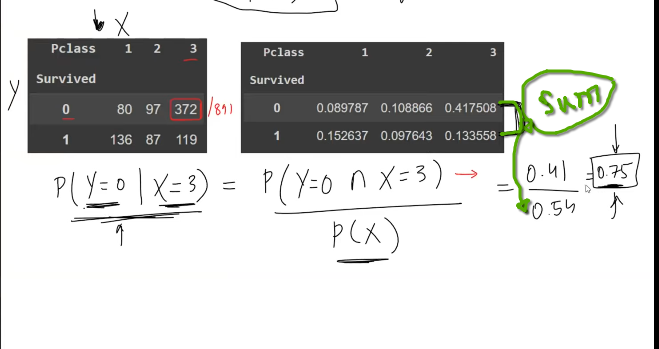 X
Pclass 1 2 3
Survived
Y
0 80 97 372 /891
1 136 87 119
Pclass 1 2 3
Survived
0 0.089787 0.108866 0.417508
1 0.152637 0.097643 0.133558
Sum
P(Y=0 | X=3) = P(Y=0 ∩ X=3) → = 0.41 = 0.75
P(X) 0.54